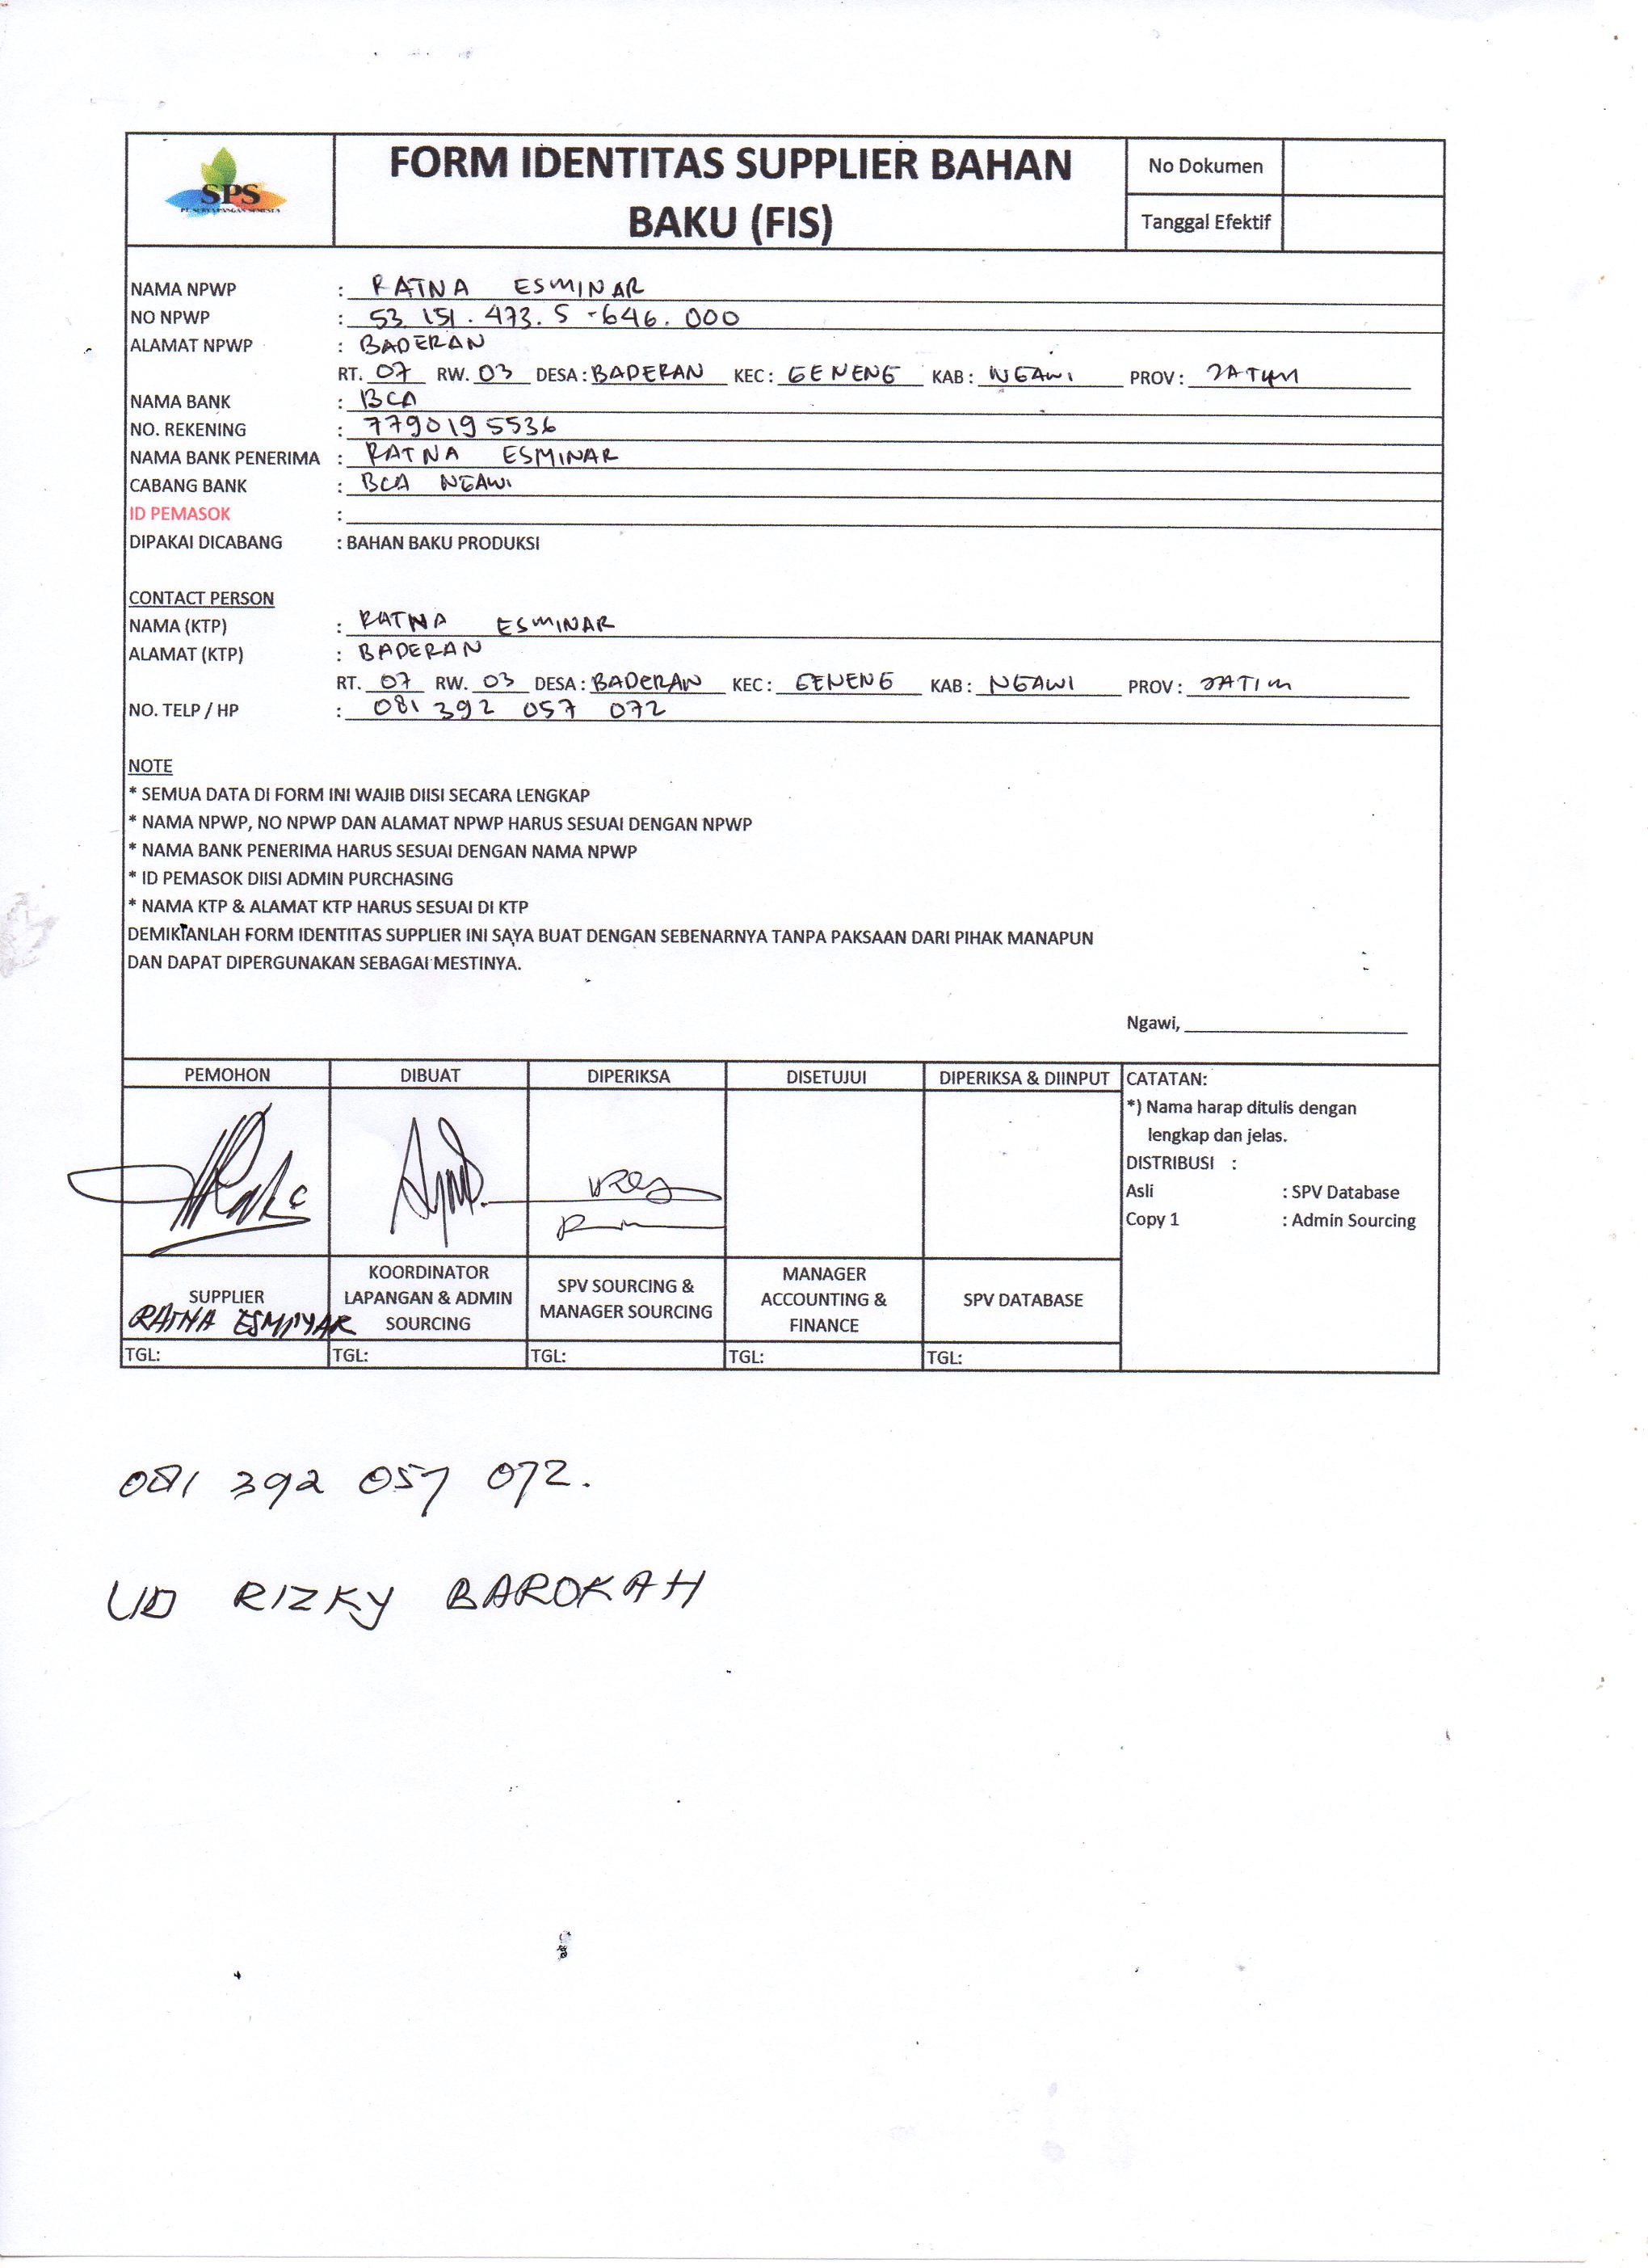 SPS
FORM IDENTITAS SUPPLIER BAHAN
BAKU (FIS)
No Dokumen
Tanggal Efektif
NAMA NPWP : RATNA ESMINAR
NO NPWP : 53 151 . 473 . 5 - 646 . 000
ALAMAT NPWP : BADERAN
RT. 07 RW. 03 DESA : BADERAN KEC : GENENG KAB : NGAWI PROV : JATIM
NAMA BANK : BCA
NO. REKENING : 7790195536
NAMA BANK PENERIMA : RATNA ESMINAR
CABANG BANK : BCA NGAWI
ID PEMASOK :
DIPAKAI DICABANG : BAHAN BAKU PRODUKSI
CONTACT PERSON
NAMA (KTP) : RATNA ESMINAR
ALAMAT (KTP) : BADERAN
RT. 07 RW. 03 DESA : BADERAN KEC : GENENG KAB : NGAWI PROV : JATIM
NO. TELP / HP : 081 392 057 072
NOTE
* SEMUA DATA DI FORM INI WAJIB DIISI SECARA LENGKAP
* NAMA NPWP, NO NPWP DAN ALAMAT NPWP HARUS SESUAI DENGAN NPWP
* NAMA BANK PENERIMA HARUS SESUAI DENGAN NAMA NPWP
* ID PEMASOK DIISI ADMIN PURCHASING
* NAMA KTP & ALAMAT KTP HARUS SESUAI DI KTP
DEMIKIANLAH FORM IDENTITAS SUPPLIER INI SAYA BUAT DENGAN SEBENARNYA TANPA PAKSAAN DARI PIHAK MANAPUN
DAN DAPAT DIPERGUNAKAN SEBAGAI MESTINYA.
Ngawi,
PEMOHON DIBUAT DIPERIKSA DISETUJUI DIPERIKSA & DIINPUT CATATAN:
*) Nama harap ditulis dengan
lengkap dan jelas.
DISTRIBUSI :
Asli : SPV Database
Copy 1 : Admin Sourcing
SUPPLIER
RATNA ESMINYAR
KOORDINATOR
LAPANGAN & ADMIN
SOURCING
SPV SOURCING &
MANAGER SOURCING
MANAGER
ACCOUNTING &
FINANCE
SPV DATABASE
TGL: TGL: TGL: TGL: TGL:
081 392 057 072.
UD RIZKY BAROKAH